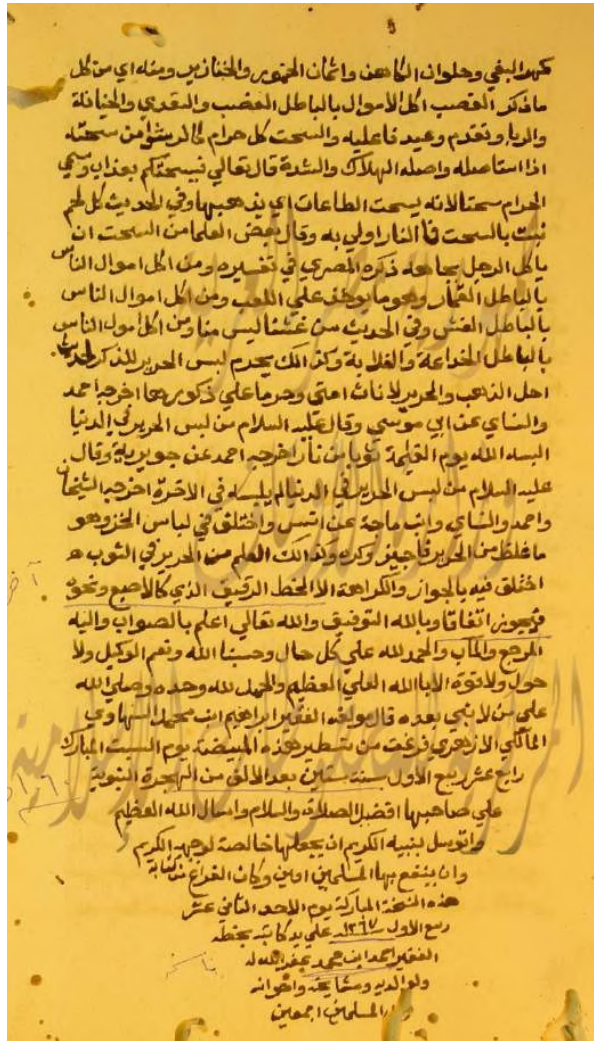 كمهر البغي وحلوان الكاهن واثمان الخمور والخنازير ومنه اي من كل
ماذكر الغصب اكل الاموال بالباطل الغصب والتعدي والخيانة
والربا وتقدم وعيد فاعليه والسحت كل حرام كالرشوا من سحته
اذا استاصله واصله الهلاك والشدة قال تعالي فيسحتكم بعذاب وسمي
الحرام سحتا لانه يسحت الطاعات اي يذهبها وفي الحديث كل لحم
نبت بالسحت فالنار اولي به وقال بعض العلما من السحت ان
ياكل الرجل بجاهه ذكره المصري في تفسيره ومن اكل اموال الناس
بالباطل القمار وهو ما يوخذ علي اللعب ومن اكل اموال الناس
بالباطل الغش وفي الحديث من غشنا ليس منا ومن اكل امول الناس
بالباطل الخداعة والغلابة وكذالك يحرم لبس الحرير للذكر لحديث
احل الذهب والحرير لاناث امتي وحرما علي ذكورها اخرجه احمد
والنساي عن ابي موسي وقال عليه السلام من لبس الحرير في الدنيا
البسه الله يوم القيمة ثوبا من نار اخرجه احمد عن جويرية وقال
عليه السلام من لبس الحرير في الدنيا لم يلبسه في الاخرة اخرجه الشيخان
واحمد والنساي وابن ماجة عن انس واختلف في لباس الخز وهو
ما غلظ من الحرير فاجيز وكره وكذالك العلم من الحرير في الثوب
اختلف فيه بالجواز والكراهة الا الخط الرقيق الذي كالاصبع ونحوه
فيجوز اتفاقا وبالله التوفيق والله تعالي اعلم بالصواب واليه
المرجع والمآب والحمد لله علي كل حال وحسبنا الله ونعم الوكيل ولا
حول ولا قوة الا بالله العلي العظيم والحمد لله وحده وصلي الله
علي من لا نبي بعده قال مولفه الفقير ابراهيم ابن محمد
المالكي الازهري فرغت من تسطير هذه المبيضة يوم السبت المبارك
رابع عشر ربيع الاول سنة ستين بعد الالف من الهجرة النبوية
علي صاحبها افضل الصلاة والسلام واسال الله العظيم
واتوسل بنبيه الكريم ان يجعلها خالصة لوجهه الكريم
وان ينفع بها المسلمين امين وكان الفراغ من كتابة
هذه النسخة المباركة يوم الاحد الثاني عشر
ربيع الاول ١٢٦٧ علي يد كاتبه بخطه
الفقير احمد ابن غفر الله له
ولوالديه ومشايخه واخوانه
المسلمين اجمعين